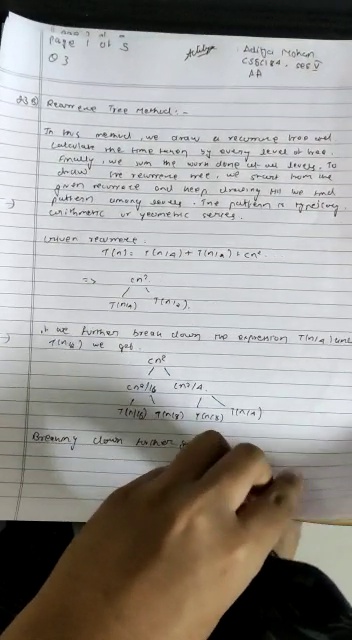 Page 1 of 5
Q 3
Aditya
Aditya Mohan
CSE
AA
Recurrence Tree Method:-
In this method, we draw a recurrence tree and
calculate the time taken by every level of tree.
Finally, we sum the work done at all levels. To
draw the recurrence tree, we start from the
given recurrence and keep drawing till we find
pattern among levels. The pattern is typically
arithmetic or geometric series.
Given recurrence
T(n) = T(n/4) + T(n/2) + cn²
=> cn²
T(n/4) T(n/2)
if we further break down the expression T(n/4) and
T(n/2) we get.
cn²
cn²/16 cn²/4
T(n/16) T(n/8) T(n/8) T(n/4)
Breaking down further